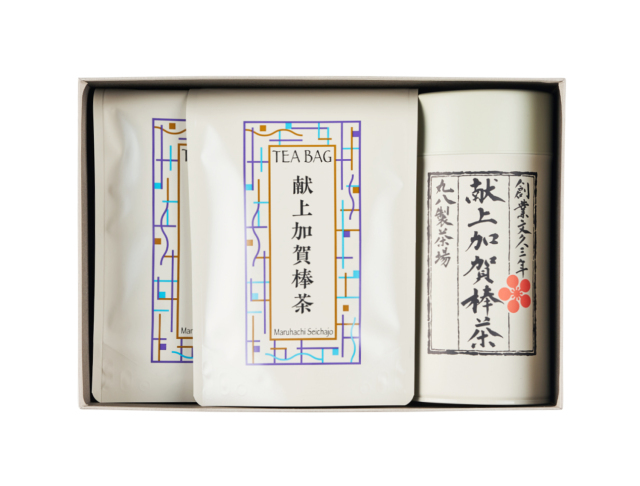 TEA BAG
献上加賀棒茶
Maruhachi Seichajo
T
Mar
創業文久三年
献上加賀棒茶
丸八製茶場